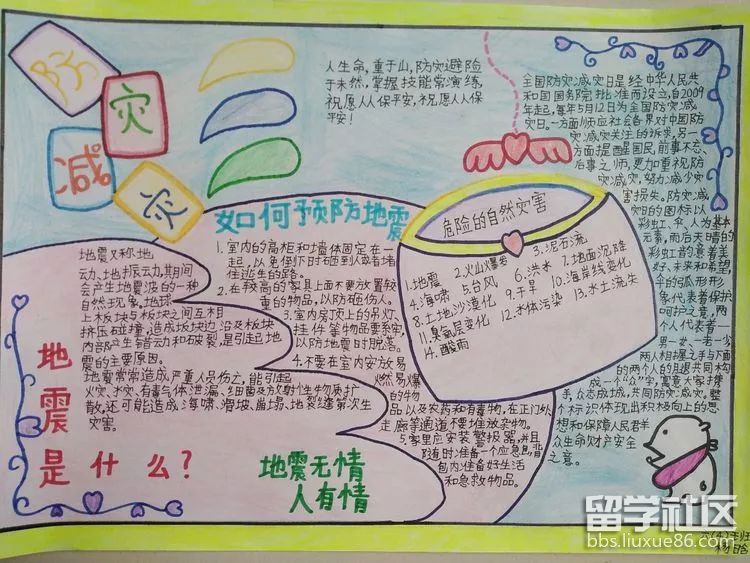 防
灾
减
灾
人生命,重于山,防灾避险
于未然,掌握技能常演练,
祝愿人人保平安,祝愿人人保
平安!
全国防灾减灾日是经中华人民共
和国国务院批准而设立,自2009
年起,每年5月12日为全国防灾减
灾日。一方面顺应社会各界对中国防
灾减灾关注的诉求,另一
方面提醒国民,前事不忘,
后事之师,更加重视防
灾减灾,努力减少灾
害损失。防灾减
灾日的图标以
彩虹、伞、人为基本
元素,雨后天晴的
彩虹首的意着美
好、未来和希望,
伞的弧形形
象代表着保护、
呵护之意,两
个人代表着一
男一女、一老一少,
两人相握之手与下面
的两个人的腿共同构
成一个“众”字,寓意大家携
手,众志成城,共同防灾减灾。整
个标识体现出积极向上的思
想和保障人民群
众生命财产安全
之意。
如何预防地震
1.室内的高柜和墙体固定在一
起,以免倒下时砸到人或者堵
住逃生的路。
2.在较高的家具上面不要放置较
重的物品,以防砸伤人。
3.室内房顶上的吊灯、
挂件等物品要系牢,
以防地震时脱落。
4.不要在室内安放易
燃易爆
的物
品以及农药和有毒物,在正门处、
走廊等通道不要堆放杂物。
5.家里应安装警报器,并且
随时准备一个应急包,背
包内准备好生活
和急救物品。
危险的自然灾害
1.地震 2.火山爆发 3.泥石流
4.海啸 5.台风 6.洪水 7.地面沉降
8.土地沙漠化 9.干旱 10.海岸线变化
11.臭氧层变化 12.水体污染 13.水土流失
14.酸雨
地震又称地
动、地振动,期间
会产生地震波的一种
自然现象,地球
上板块与板块之间互相
挤压碰撞,造成板块边沿及板块
内部产生错动和破裂,是引起地
震的主要原因。
地震常常造成严重人员伤亡,能引起
火灾、水灾、有毒气体泄漏、细菌及放射性生物质扩
散,还可能造成海啸、滑坡、崩塌、地裂缝等次生
灾害。
地
震
是什么?
地震无情
人有情
六(4)年班
杨晗
留学社区
bbs.liuxue86.com